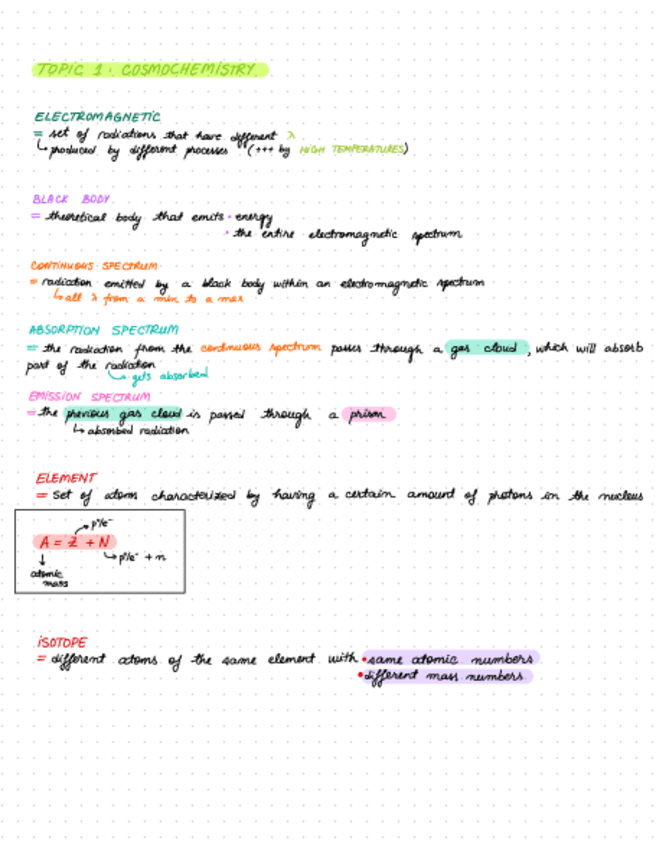 TOPIC 1. COSMOCHEMISTRY
ELECTROMAGNETIC
= set of radiations that have different λ
↳ produced by different processes (+++ by HIGH TEMPERATURES)
BLACK BODY
= theoretical body that emits • energy
• the entire electromagnetic spectrum
CONTINUOUS SPECTRUM
= radiation emitted by a black body within an electromagnetic spectrum
↳ all λ from a min to a max
ABSORPTION SPECTRUM
= the radiation from the continuous spectrum passes through a gas cloud, which will absorb
part of the radiation
↳ gets absorbed
EMISSION SPECTRUM
= the previous gas cloud is passed through a prism
↳ absorbed radiation
ELEMENT
= set of atoms characterized by having a certain amount of protons in the nucleus
p⁺/e⁻
A = Z + N
p⁺/e⁻ + n
atomic
mass
ISOTOPE
= different atoms of the same element with • same atomic numbers
• different mass numbers